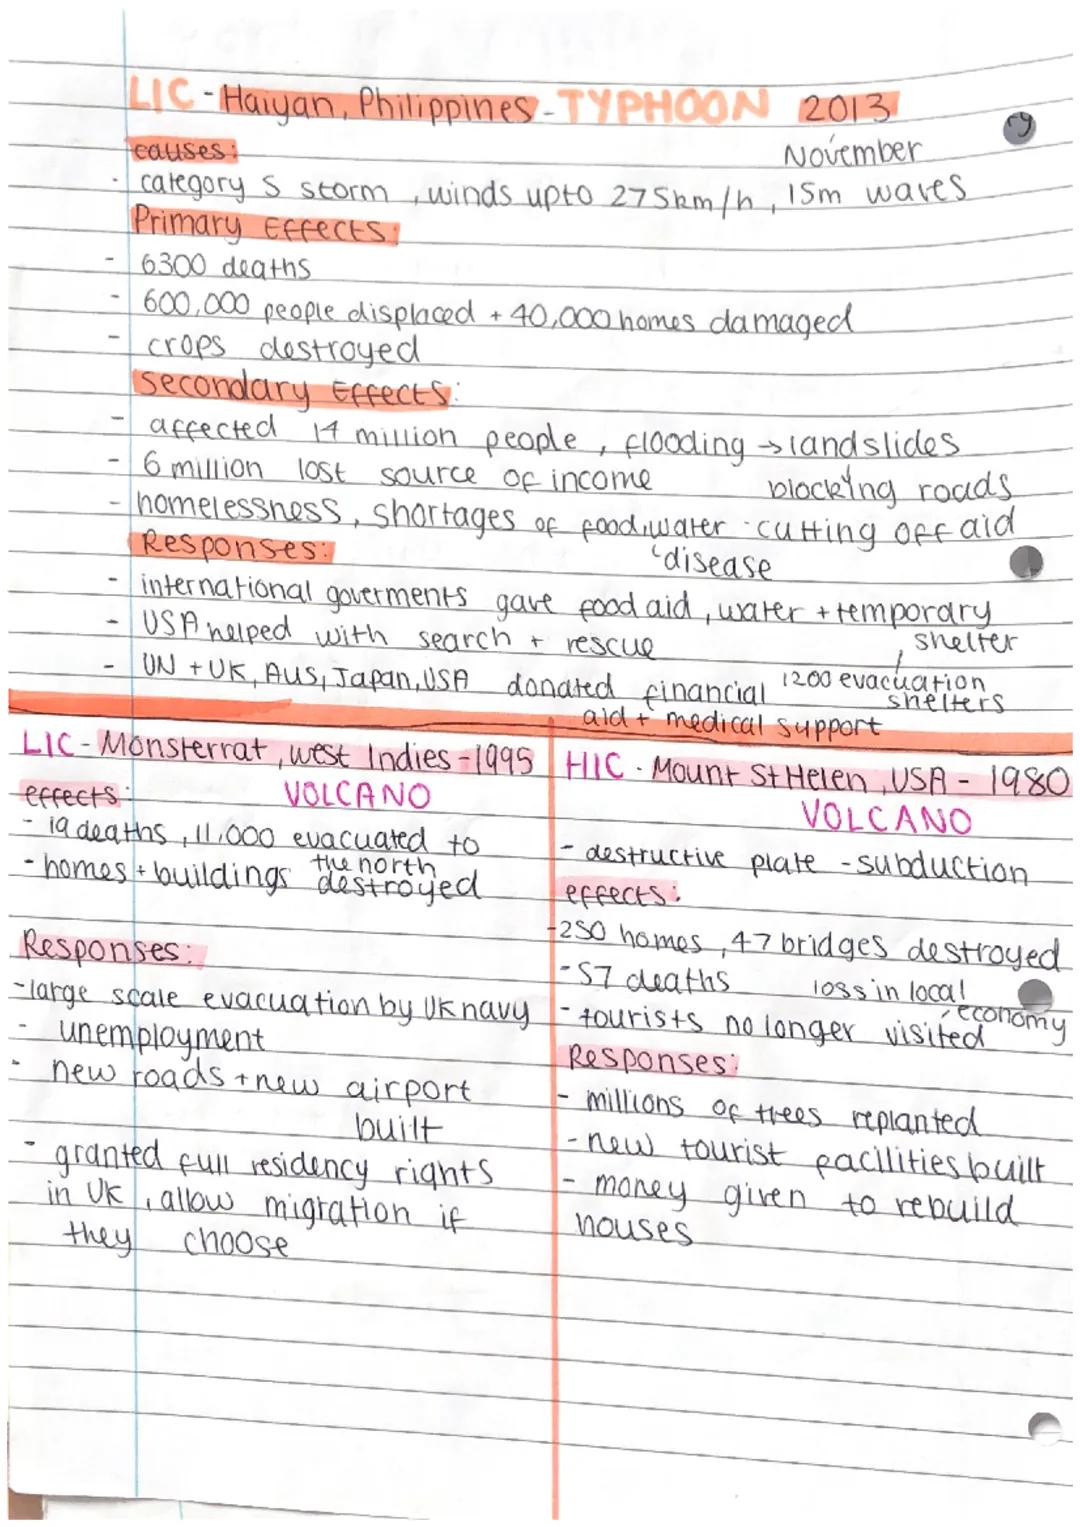 LIC - Haiyan, Philippines - TYPHOON 2013
causes: November
· category 5 storm, winds upto 275km/h, 15m waves
Primary Effects:
- 6300 deaths
- 600,000 people displaced + 40,000 homes damaged
- crops destroyed
Secondary Effects:
- affected 14 million people, flooding → landslides
- 6 million lost source of income blocking roads
- homelessness, shortages of food, water · cutting off aid
disease
Responses:
- international goverments gave food aid, water + temporary
shelter
- USA helped with search + rescue
- UN + UK, Aus, Japan, USA donated financial
aid + medical support
1200 evacuation
shelters
LIC - Monsterrat, west Indies - 1995
VOLCANO
effects:
- 19 deaths, 11,000 evacuated to
the north
- homes + buildings destroyed
Responses:
- large scale evacuation by UK navy
- unemployment
- new roads + new airport
built
- granted full residency rights
in UK, allow migration if
they choose
HIC - Mount St Helen, USA - 1980
VOLCANO
- destructive plate - subduction
effects:
- 250 homes, 47 bridges destroyed
- 57 deaths
loss in local
economy
- tourists no longer visited
Responses:
- millions of trees replanted
- new tourist facilities built
- money given to rebuild
houses